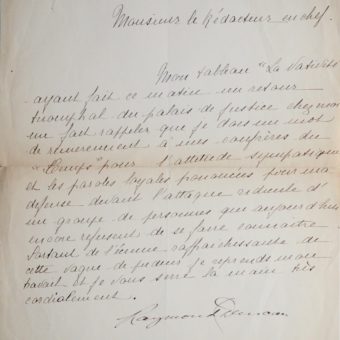 Monsieur le Rédacteur en chef.
Mon tableau "La Nativité"
ayant fait ce matin un retour
triomphal du palais de justice chez moi
me fait rappeler que je dois un mot
de remerciement à mes confrères du
"Temps" pour l'attitude sympathique
et les paroles loyales prononcées pour ma
défense devant l'attaque ridicule d'
un groupe de personnes qui aujourd'hui
encore refusent de se faire connaître
Sortant de l'écume raffraichissante de
cette vague de pudeur je reprends mon
travail et je vous serre la main très
cordialement.
Raymond